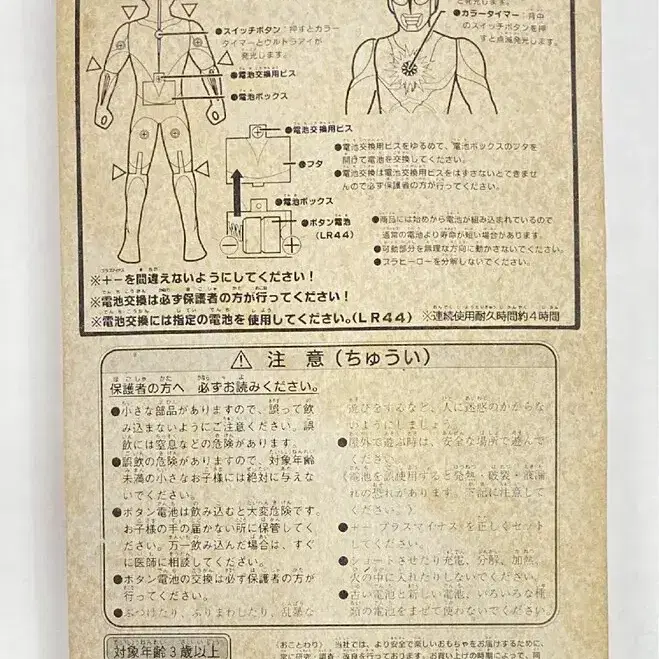 ●スイッチボタン:押すとカラー
タイマーとウルトラアイが
発光します。
●電池交換用ビス
●電池ボックス
と発光します。
●カラータイマー:背中
のスイッチボタンを押
すと点滅発光します。
●電池交換用ビス
●フタ
●電池ボックス
●ボタン電池
(LR44)
●電池交換用ビスをゆるめて、電池ボックスのフタを
開けて電池を交換してください。
●電池交換は電池交換用ビスをはずさないとできませ
んので必ず保護者の方が行ってください。
●商品には始めから電池が組み込まれているので
通常の電池より寿命が短い場合があります。
●可動部分を無理な方向に動かさないでください。
●プラヒーローを分解しないでください。
※+-を間違えないようにしてください!
※電池交換は必ず保護者の方が行ってください!
※電池交換には指定の電池を使用してください。(LR44)
※連続使用耐久時間約4時間
⚠注意(ちゅうい)
保護者の方へ 必ずお読みください。
●小さな部品がありますので、誤って飲
み込まないようにご注意ください。誤
飲には窒息などの危険があります。
●誤飲の危険がありますので、対象年齢
未満の小さなお子様には絶対に与えな
いでください。
●ボタン電池は飲み込むと大変危険です。
お子様の手の届かない所に保管してく
ださい。万一飲み込んだ場合は、すぐ
に医師に相談してください。
●ボタン電池の交換は必ず保護者の方が
行ってください。
●ぶつけたり、ふりまわしたり、乱暴な
遊びをするなど、人に迷惑のかからな
いようにしましょう。
●屋外で遊ぶ時は、安全な場所で遊んで
ください。
(電池を誤使用すると発熱・破裂・液漏
れの恐れがあります。下記に注意して
ください。)
●+-プラスマイナスを正しくセット
してください。
●ショートさせたり充電、分解、加熱、
火の中に入れたりしないでください。
●古い電池と新しい電池、いろいろな種
類の電池をまぜて使わないでください。
対象年齢3歳以上
(おことわり) 当社では、より安全で楽しいおもちゃをお届けするために、
常に研究・調査・改良を行っております。お買い上げの時期によって、同